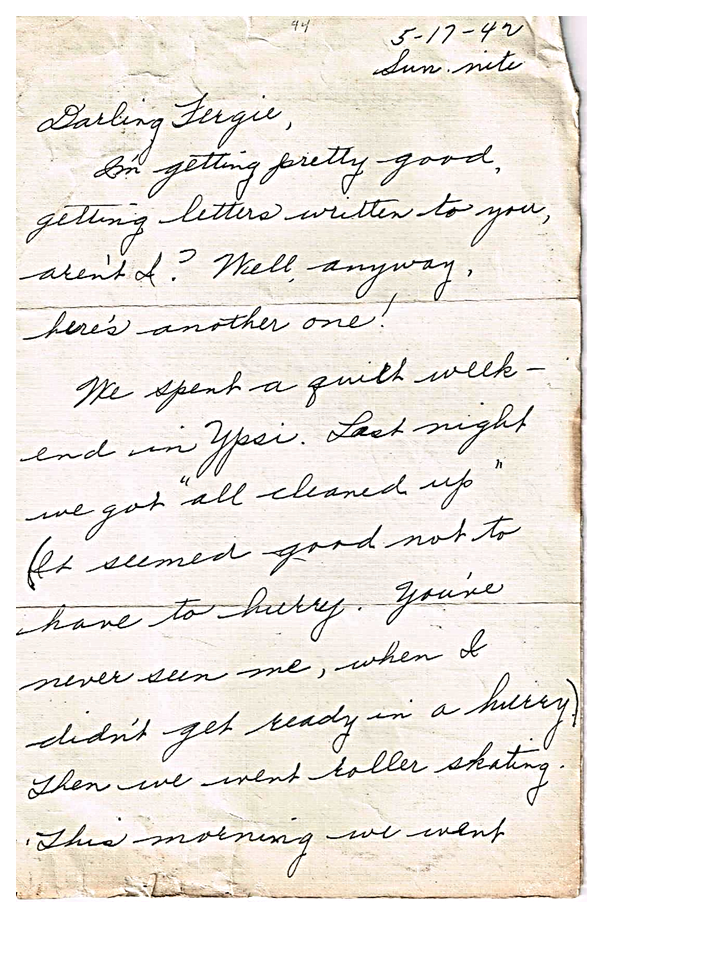 44
5-17-42
Sun. nite
Darling Fergie,
I'm getting pretty good,
getting letters written to you,
aren't I? Well, anyway,
here's another one!
We spent a quiet week-
end in Ypsi. Last night
we got "all cleaned up"
(It seemed good not to
have to hurry. You've
never seen me, when I
didn't get ready in a hurry)
Then we went roller skating.
This morning we went